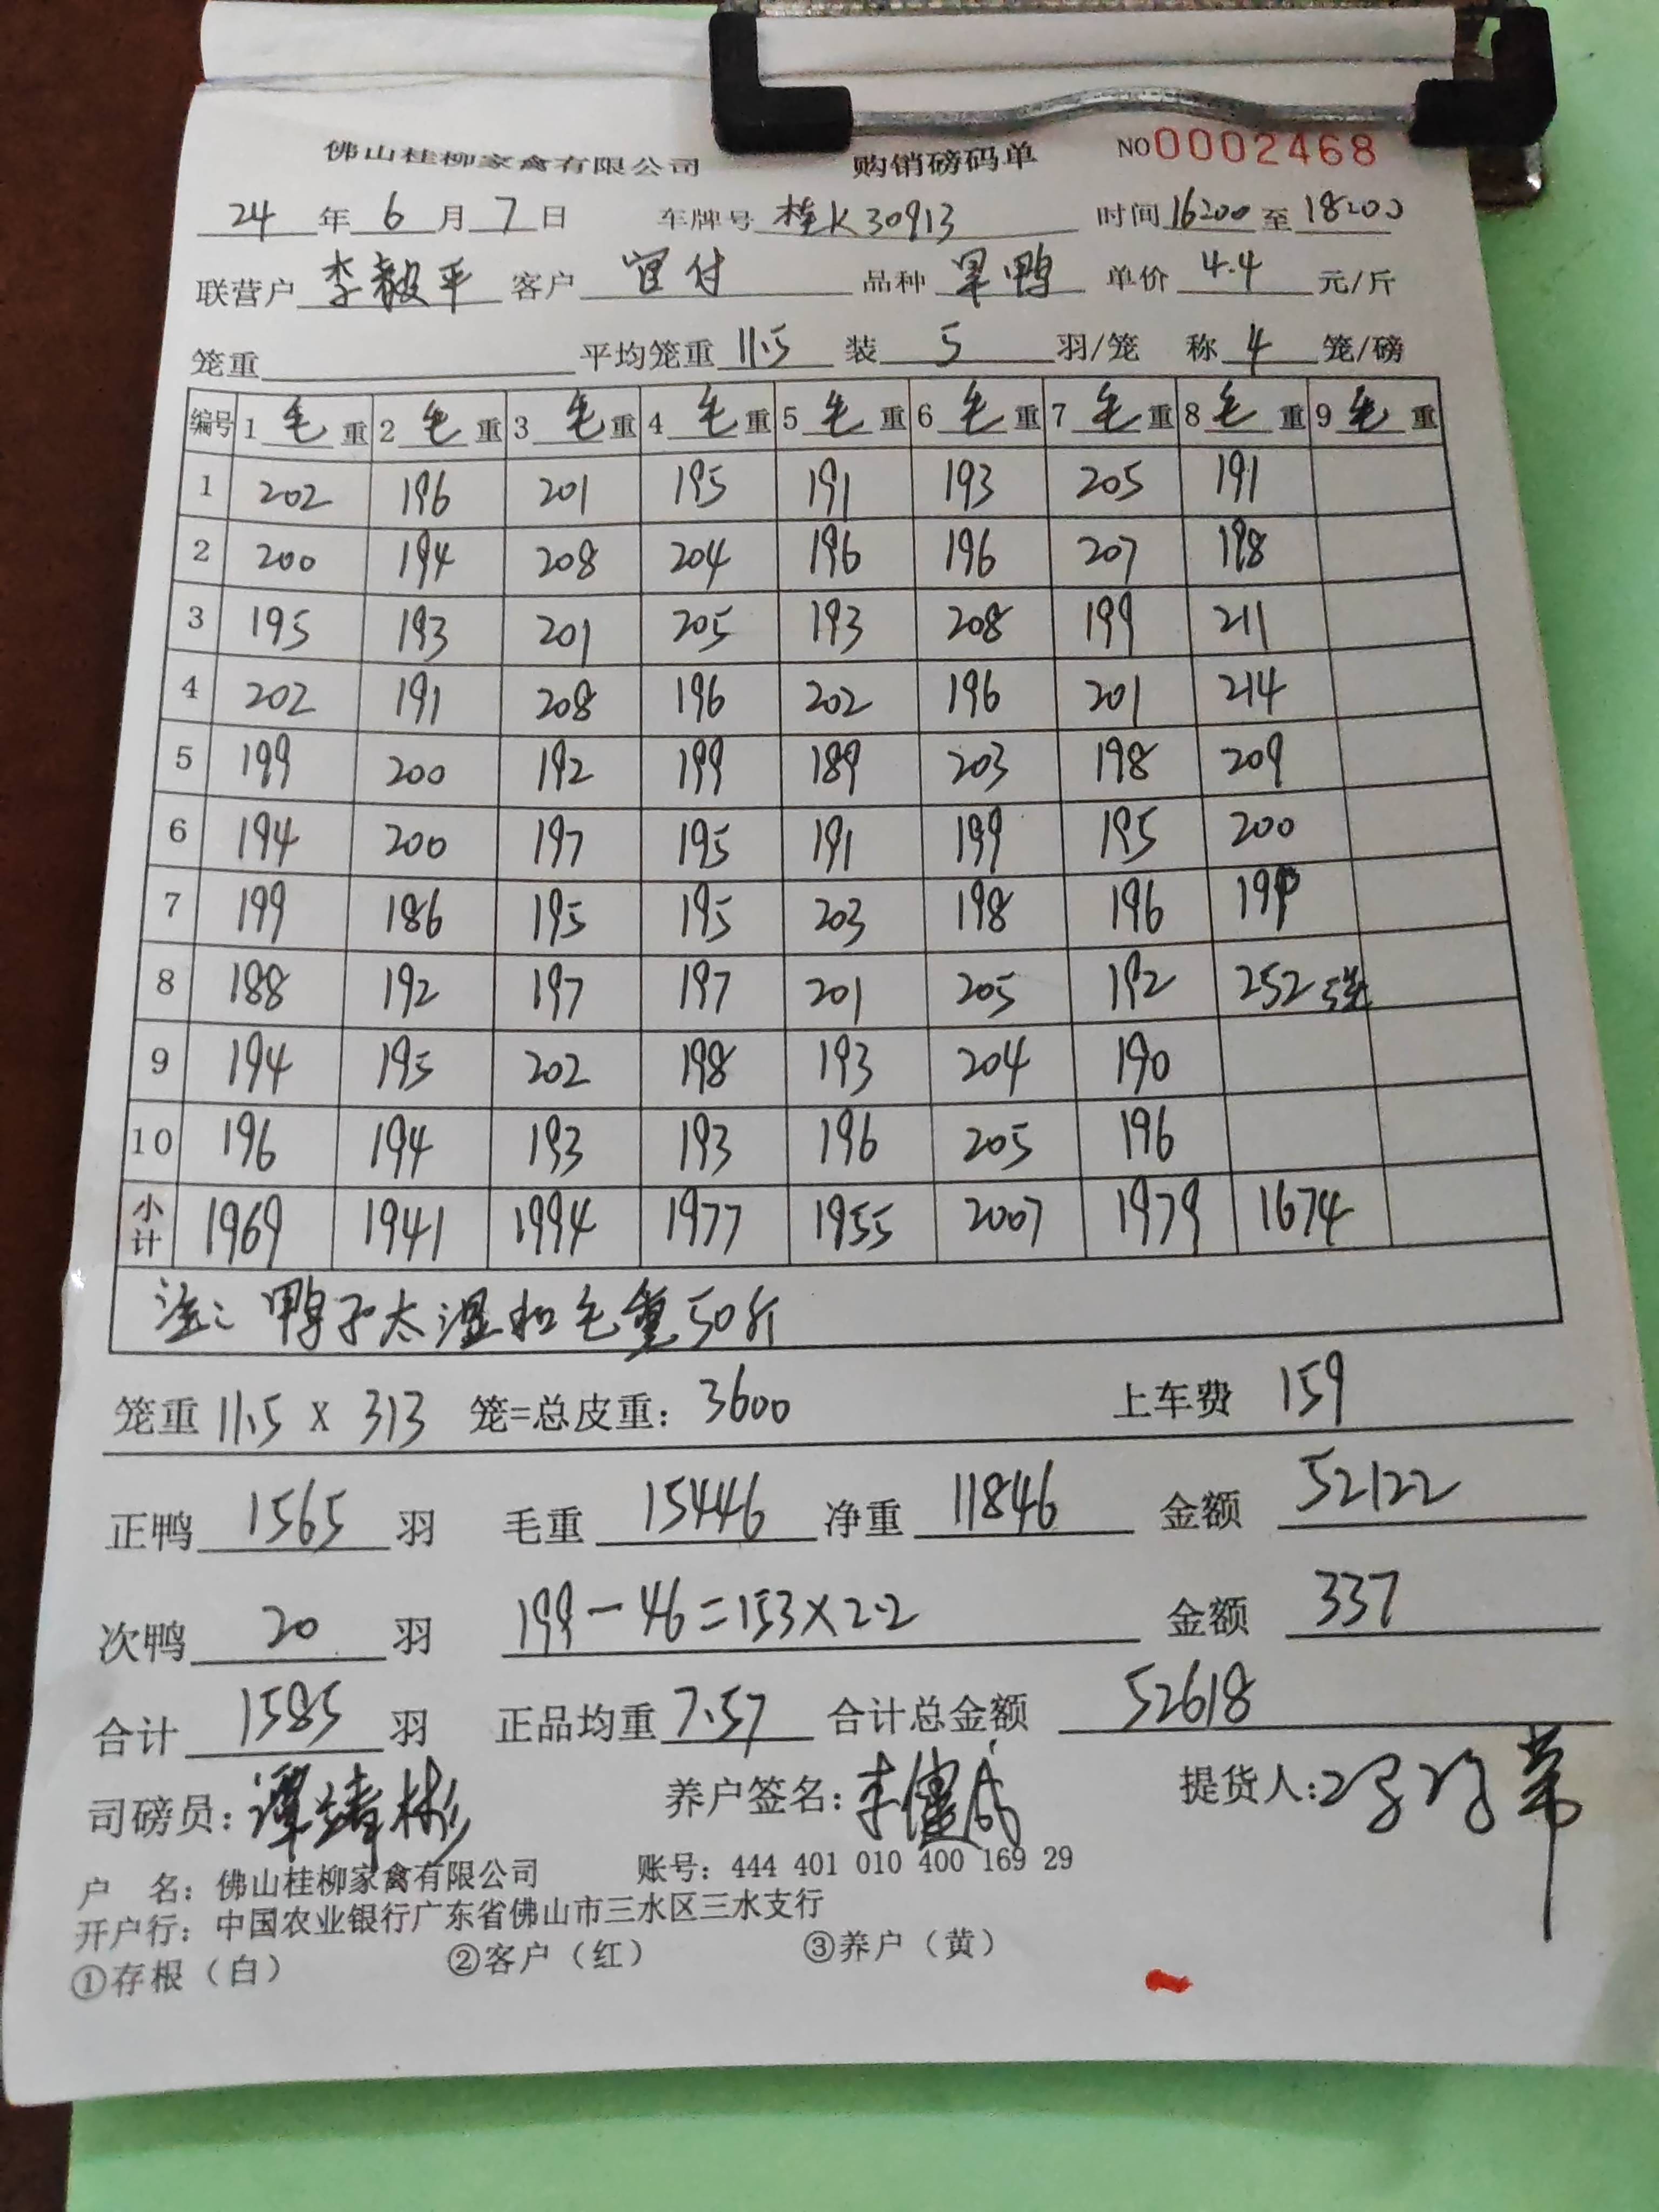 佛山桂柳家禽有限公司 购销磅码单 NO 0002468
24 年 6 月 7 日 车牌号 桂K30913 时间 16:00 至 18:00
联营户 李毅平 客户 宜付 品种 果鸭 单价 4.4 元/斤
笼重 平均笼重 11.5 装 5 羽/笼 称 4 笼/磅
编号 1 毛 重 2 毛 重 3 毛 重 4 毛 重 5 毛 重 6 毛 重 7 毛 重 8 毛 重 9 毛 重
1 202 196 201 195 191 193 205 191
2 200 194 208 204 196 196 207 198
3 195 193 201 205 193 208 199 211
4 202 191 208 196 202 196 201 214
5 199 200 192 199 189 203 198 209
6 194 200 197 195 191 199 195 200
7 199 186 195 195 203 198 196 199
8 188 192 197 197 201 205 192 252 5笼
9 194 195 202 198 193 204 190
10 196 194 193 193 196 205 196
小计 1969 1941 1994 1977 1955 2007 1979 1674
注: 鸭子太湿扣毛重50斤
笼重 11.5 X 313 笼=总皮重: 3600 上车费 159
正鸭 1565 羽 毛重 15446 净重 11846 金额 52122
次鸭 20 羽 199-46=153×2.2 金额 337
合计 1585 羽 正品均重 7.57 合计总金额 52618
司磅员: 谭靖彬 养户签名: 提货人:
户 名: 佛山桂柳家禽有限公司 账号: 444 401 010 400 169 29
开户行: 中国农业银行广东省佛山市三水区三水支行
①存根（白） ②客户（红） ③养户（黄）